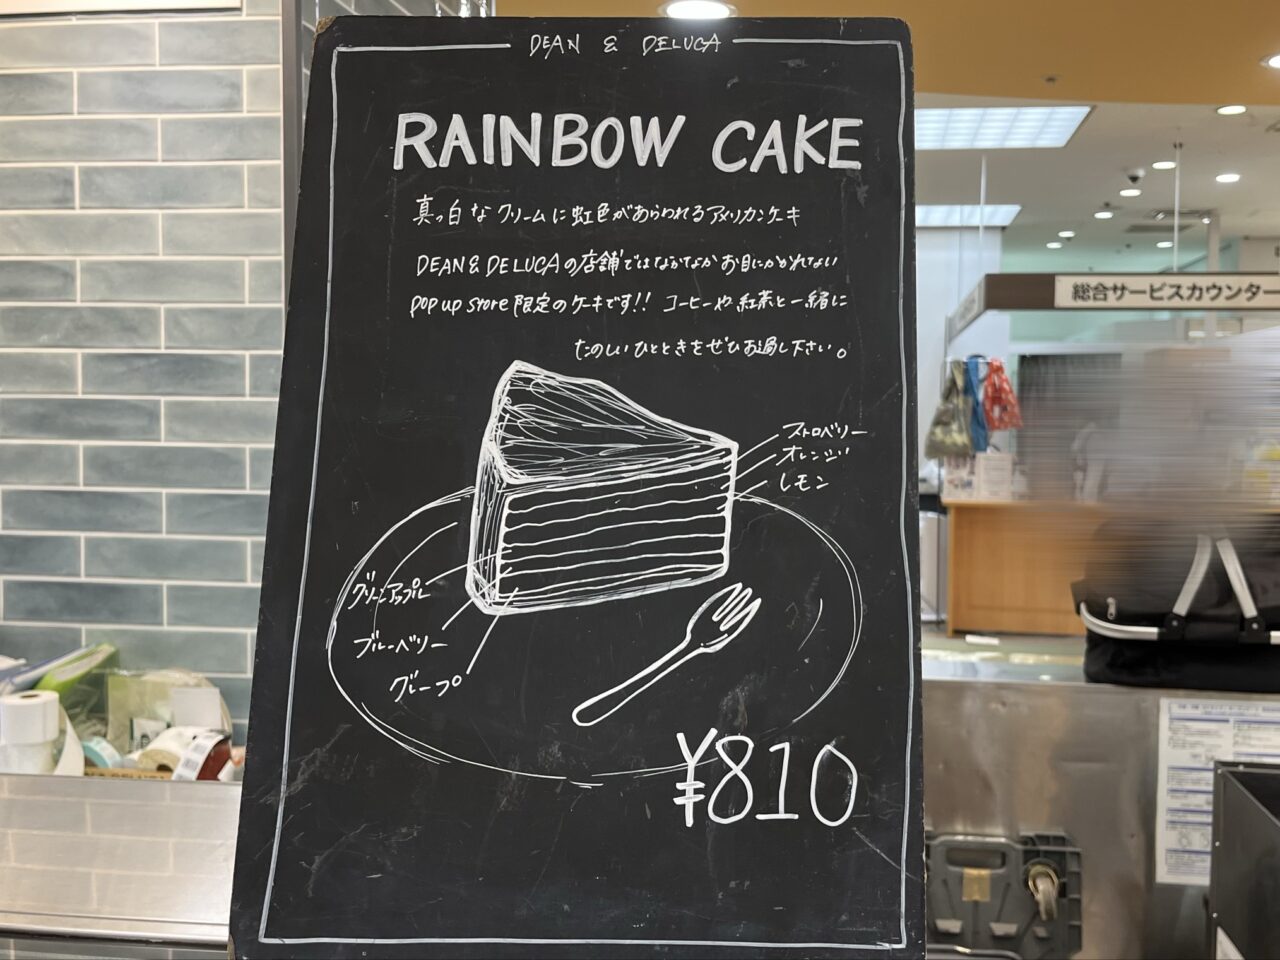 DEAN & DELUCA
RAINBOW CAKE
真っ白なクリームに虹色があらわれるアメリカンケーキ
DEAN & DELUCAの店舗ではなかなかお目にかかれない
POP up store 限定のケーキです!! コーヒーや紅茶と一緒に
たのしいひとときをぜひお過し下さい。
ストロベリー
オレンジ
レモン
グリーンアップル
ブルーベリー
グレープ
¥810
総合サービスカウンター